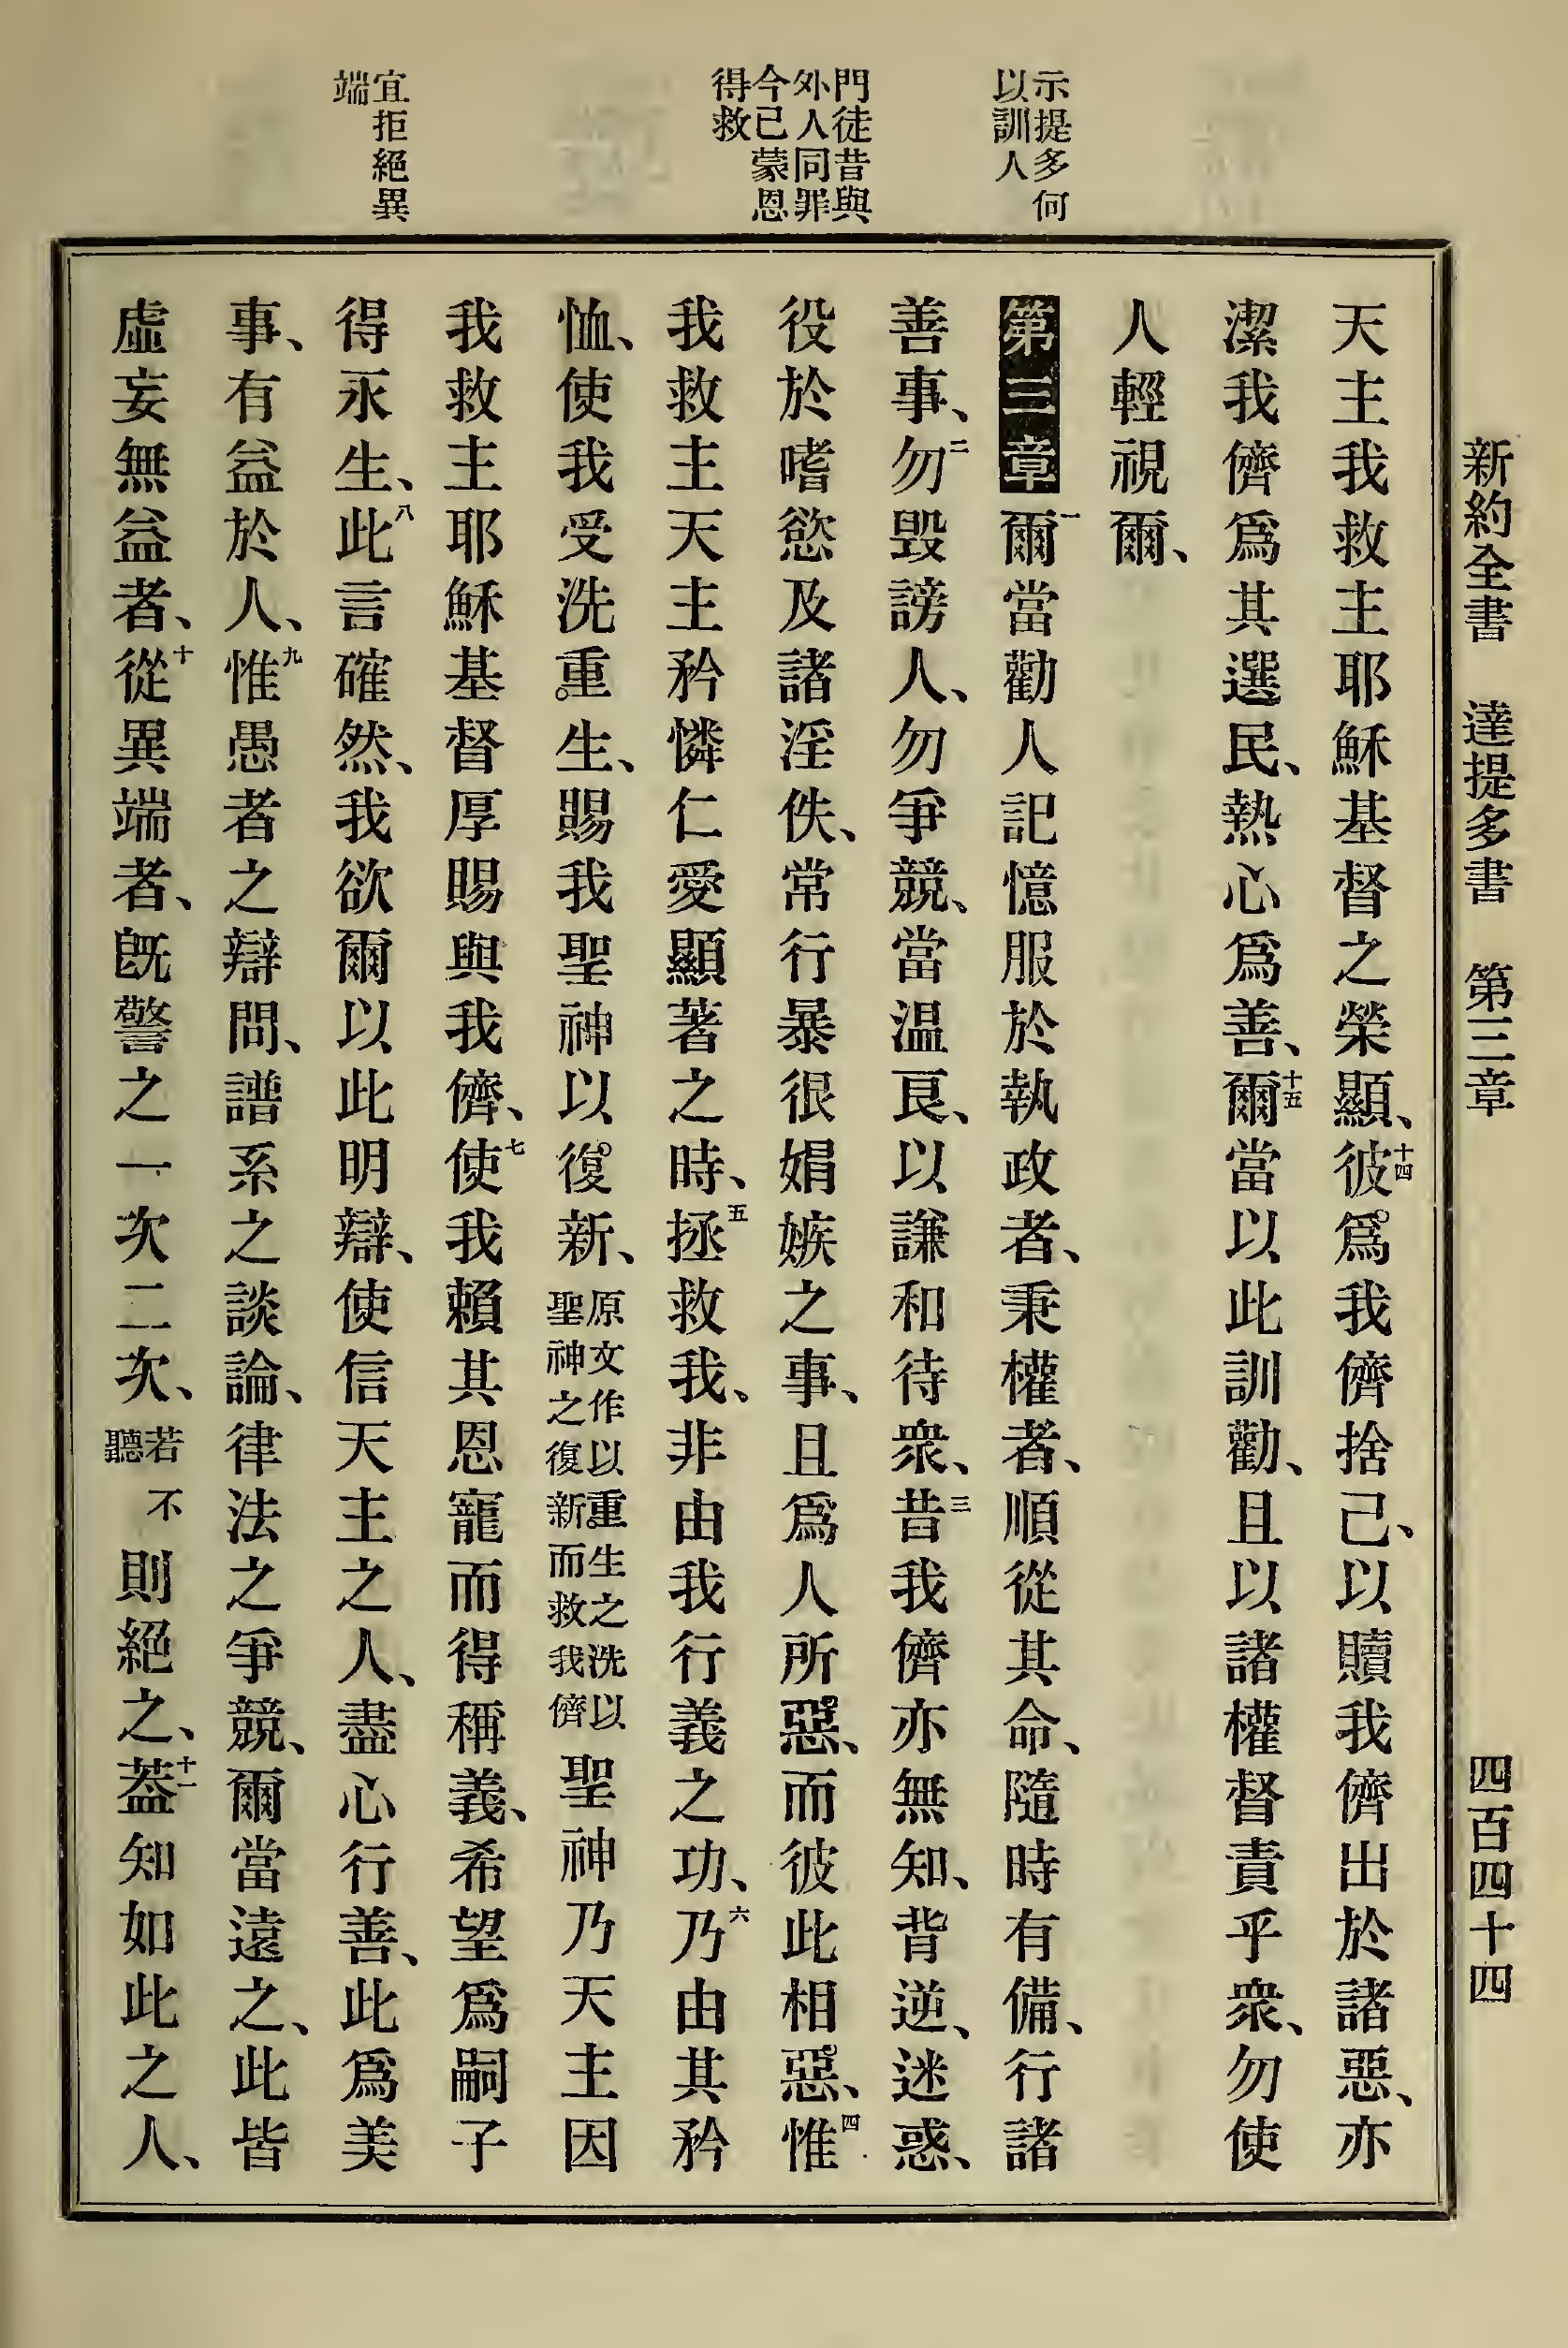 新約全書 達提多書 第三章 四百四十四
示提多何
以訓人
門徒昔與
外人同罪
今己蒙恩
得救
宜拒絕異
端
天主我救主耶穌基督之榮顯、十四彼爲我儕捨己、以贖我儕出於諸惡、亦
潔我儕爲其選民、熱心爲善、十五爾當以此訓勸、且以諸權督責乎衆、勿使
人輕視爾、
第三章一爾當勸人記憶服於執政者、秉權者、順從其命、隨時有備、行諸
善事、二勿毀謗人、勿爭競、當温良、以謙和待衆、三昔我儕亦無知、背逆、迷惑、
役於嗜慾及諸淫佚、常行暴很娟嫉之事、且爲人所惡、而彼此相惡、四惟
我救主天主矜憐仁愛顯著之時、五拯救我、非由我行義之功、六乃由其矜
恤、使我受洗重生、賜我聖神以復新、原文作以重生之洗以聖神之復新而救我儕聖神乃天主因
我救主耶穌基督厚賜與我儕、七使我賴其恩寵而得稱義、希望爲嗣子
得永生、八此言確然、我欲爾以此明辯、使信天主之人、盡心行善、此爲美
事、有益於人、九惟愚者之辯問、譜系之談論、律法之爭競、爾當遠之、此皆
虛妄無益者、十從異端者、旣警之一次二次、若不聽則絕之、十一蓋知如此之人、